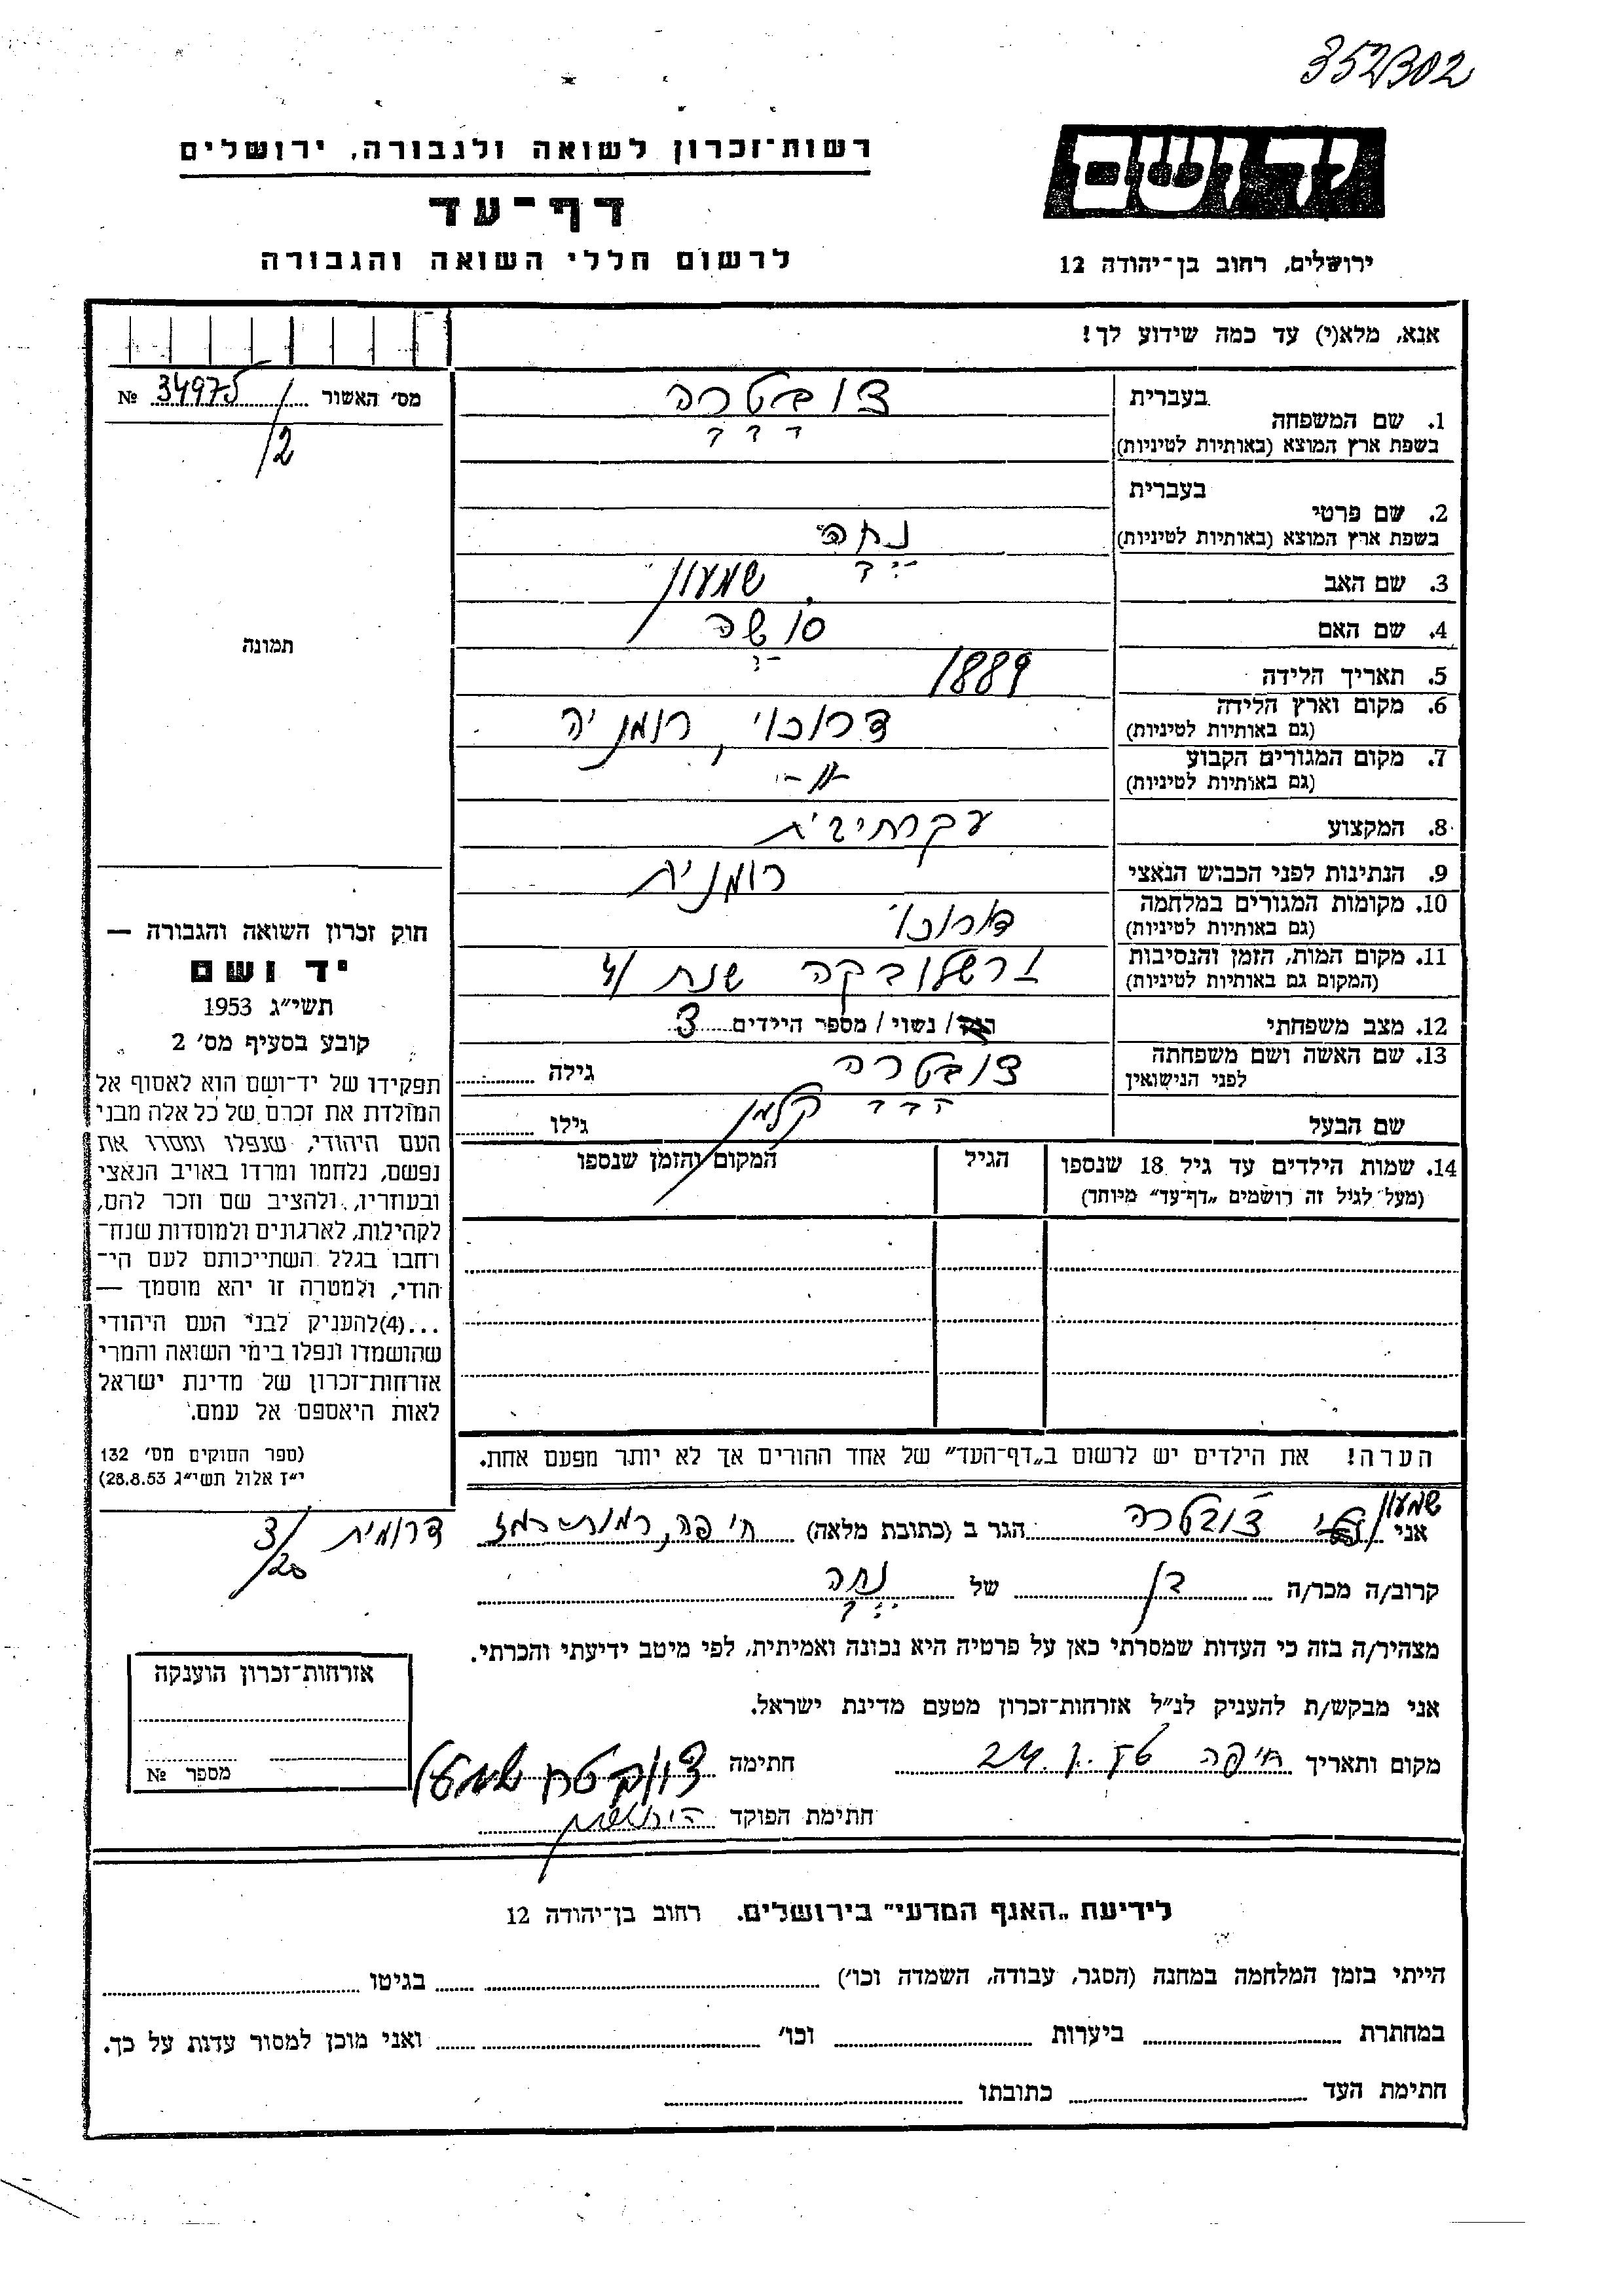 352302
רשות־זכרון לשואה ולגבורה, ירושלים
דף־עד
לרשום חללי השואה והגבורה
יד ושם
ירושלים, רחוב בן־יהודה 12
אנא, מלא(י) עד כמה שידוע לך!
מס׳ האשור 34975 №
/2
תמונה
1. שם המשפחה
בעברית
צובטרה
בשפת ארץ המוצא (באותיות לטיניות)
2. שם פרטי
בעברית
נחה
בשפת ארץ המוצא (באותיות לטיניות)
3. שם האב שמעון
4. שם האם סושה
5. תאריך הלידה 1889
6. מקום וארץ הלידה רומניה
(גם באותיות לטיניות)
7. מקום המגורים הקבוע
(גם באותיות לטיניות)
8. המקצוע עקרת בית
9. הנתינות לפני הכבוש הנאצי רומנית
10. מקומות המגורים במלחמה
(גם באותיות לטיניות)
11. מקום המות, הזמן והנסיבות שנת 41
(המקום גם באותיות לטיניות)
12. מצב משפחתי רוק / נשוי / מספר הילדים 3
13. שם האשה ושם משפחתה צובטרה גילה
לפני הנישואין
שם הבעל קלמן גילו
14. שמות הילדים עד גיל 18 שנספו הגיל המקום והזמן שנספו
(מעל לגיל זה רושמים „דף־עד״ מיוחד)
הערה! את הילדים יש לרשום ב„דף־העד״ של אחד ההורים אך לא יותר מפעם אחת.
חוק זכרון השואה והגבורה —
יד ושם
תשי״ג 1953
קובע בסעיף מס׳ 2
תפקידו של יד־ושם הוא לאסוף אל
המולדת את זכרם של כל אלה מבני
העם היהודי, שנפלו ומסרו את
נפשם, נלחמו ומרדו באויב הנאצי
ובעוזריו, ולהציב שם וזכר להם,
לקהילות, לארגונים ולמוסדות שנח־
רחבו בגלל השתייכותם לעם הי־
הודי, ולמטרה זו יהא מוסמך —
...(4)להעניק לבני העם היהודי
שהושמדו ונפלו בימי השואה והמרי
אזרחות־זכרון של מדינת ישראל
לאות היאספם אל עמם.
(ספר החוקים מס׳ 132
י״ז אלול תשי״ג 28.8.53)
שמעון
אני צובטרה הגר ב (כתובת מלאה) חיפה, רמות רמז דרומית 3/20
קרוב/ה מכר/ה בן של נחה
מצהיר/ה בזה כי העדות שמסרתי כאן על פרטיה היא נכונה ואמיתית, לפי מיטב ידיעתי והכרתי.
אני מבקש/ת להעניק לנ״ל אזרחות־זכרון מטעם מדינת ישראל.
מקום ותאריך חיפה חתימה
חתימת הפוקד
אזרחות־זכרון הוענקה
מספר №
לידיעת „האגף המדעי״ בירושלים. רחוב בן־יהודה 12
הייתי בזמן המלחמה במחנה (הסגר, עבודה, השמדה וכו׳) בגיטו
במחתרת ביערות וכו׳ ואני מוכן למסור עדות על כך.
חתימת העד כתובתו